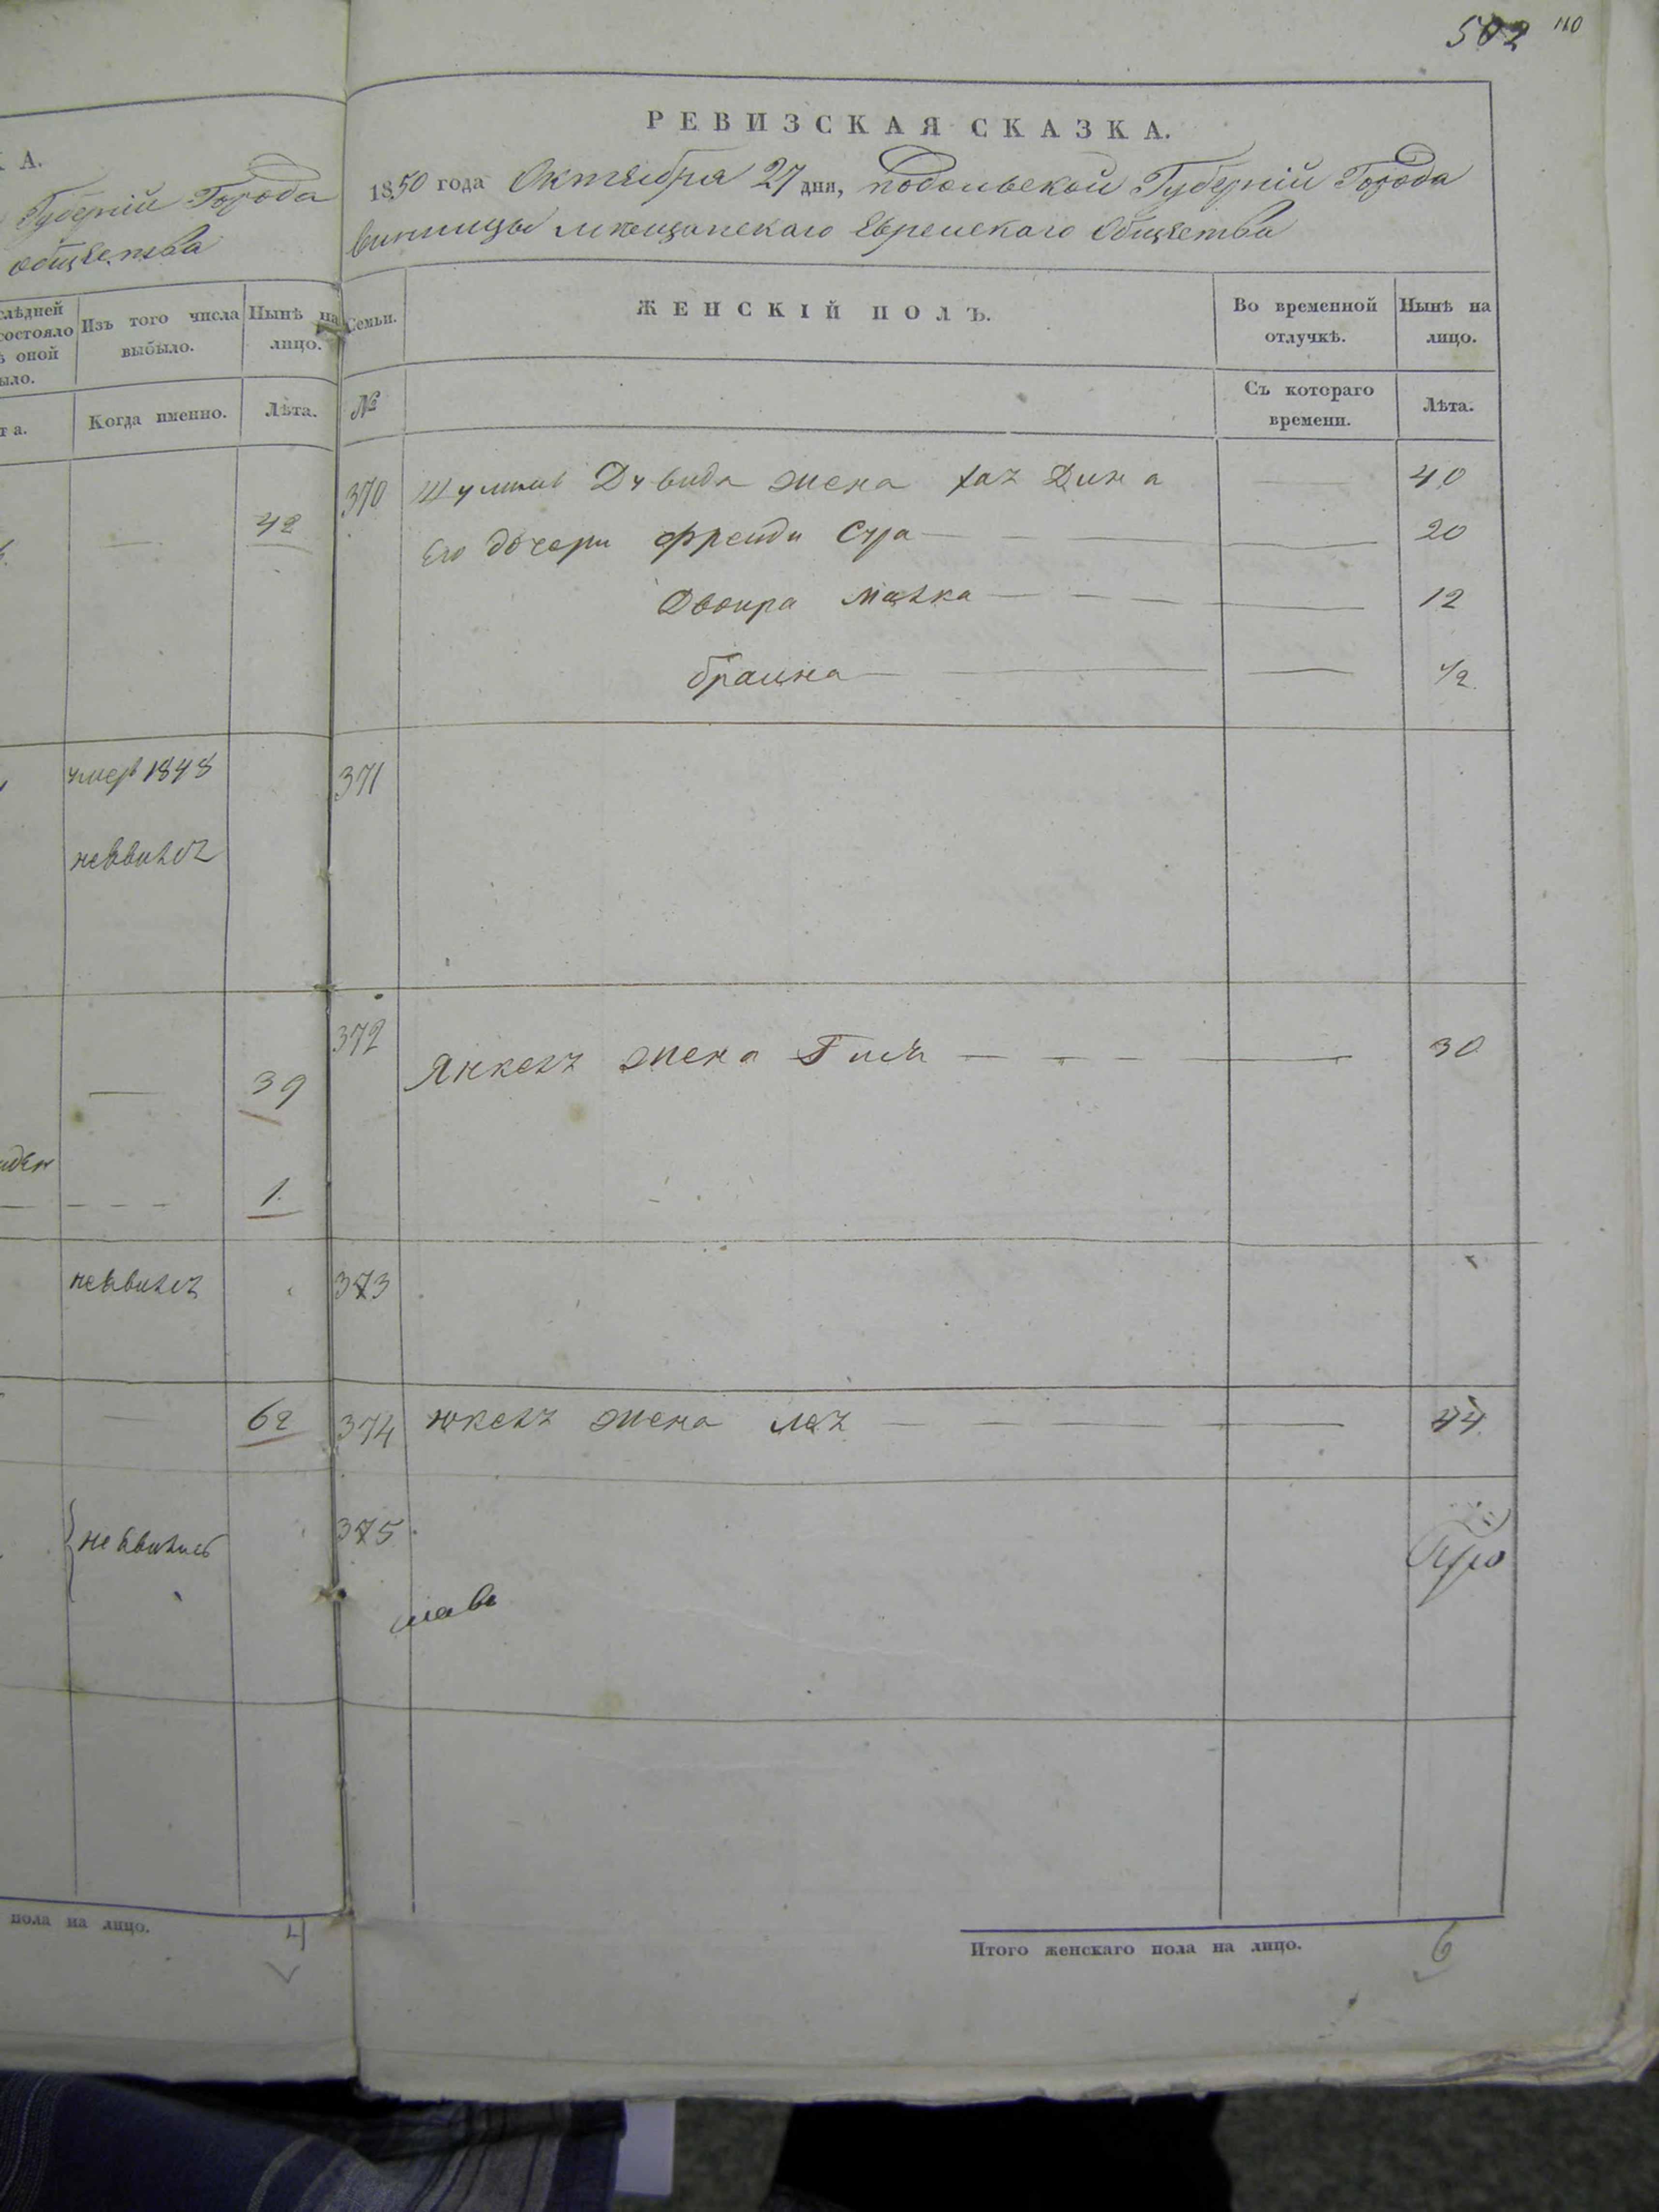 502 110
К А.
Губерніи Города
общества
слѣдней состояло ѣ оной ыло.
Изъ того числа выбыло.
Нынѣ на лицо.
та.
Когда именно.
Лѣта.
— 42
умеръ 1848
неявился
— 39
1
неявился
— 62
неявились
пола на лицо. 4
РЕВИЗСКАЯ СКАЗКА.
1850 года Октября 27 дня, подольской Губерніи Города
винницы мѣщанскаго Еврейскаго Общества
Семьи.
ЖЕНСКІЙ ПОЛЪ.
Во временной отлучкѣ.
Нынѣ на лицо.
№
Съ котораго времени.
Лѣта.
370 Дувида жена хая Дина — 40
Его дочери фрейда Сура — 20
Двоира Малка — 12
браина — 1/2
371
372 Янкеля жена — 30
373
374 жена лея — 44
375
Итого женскаго пола на лицо. 6